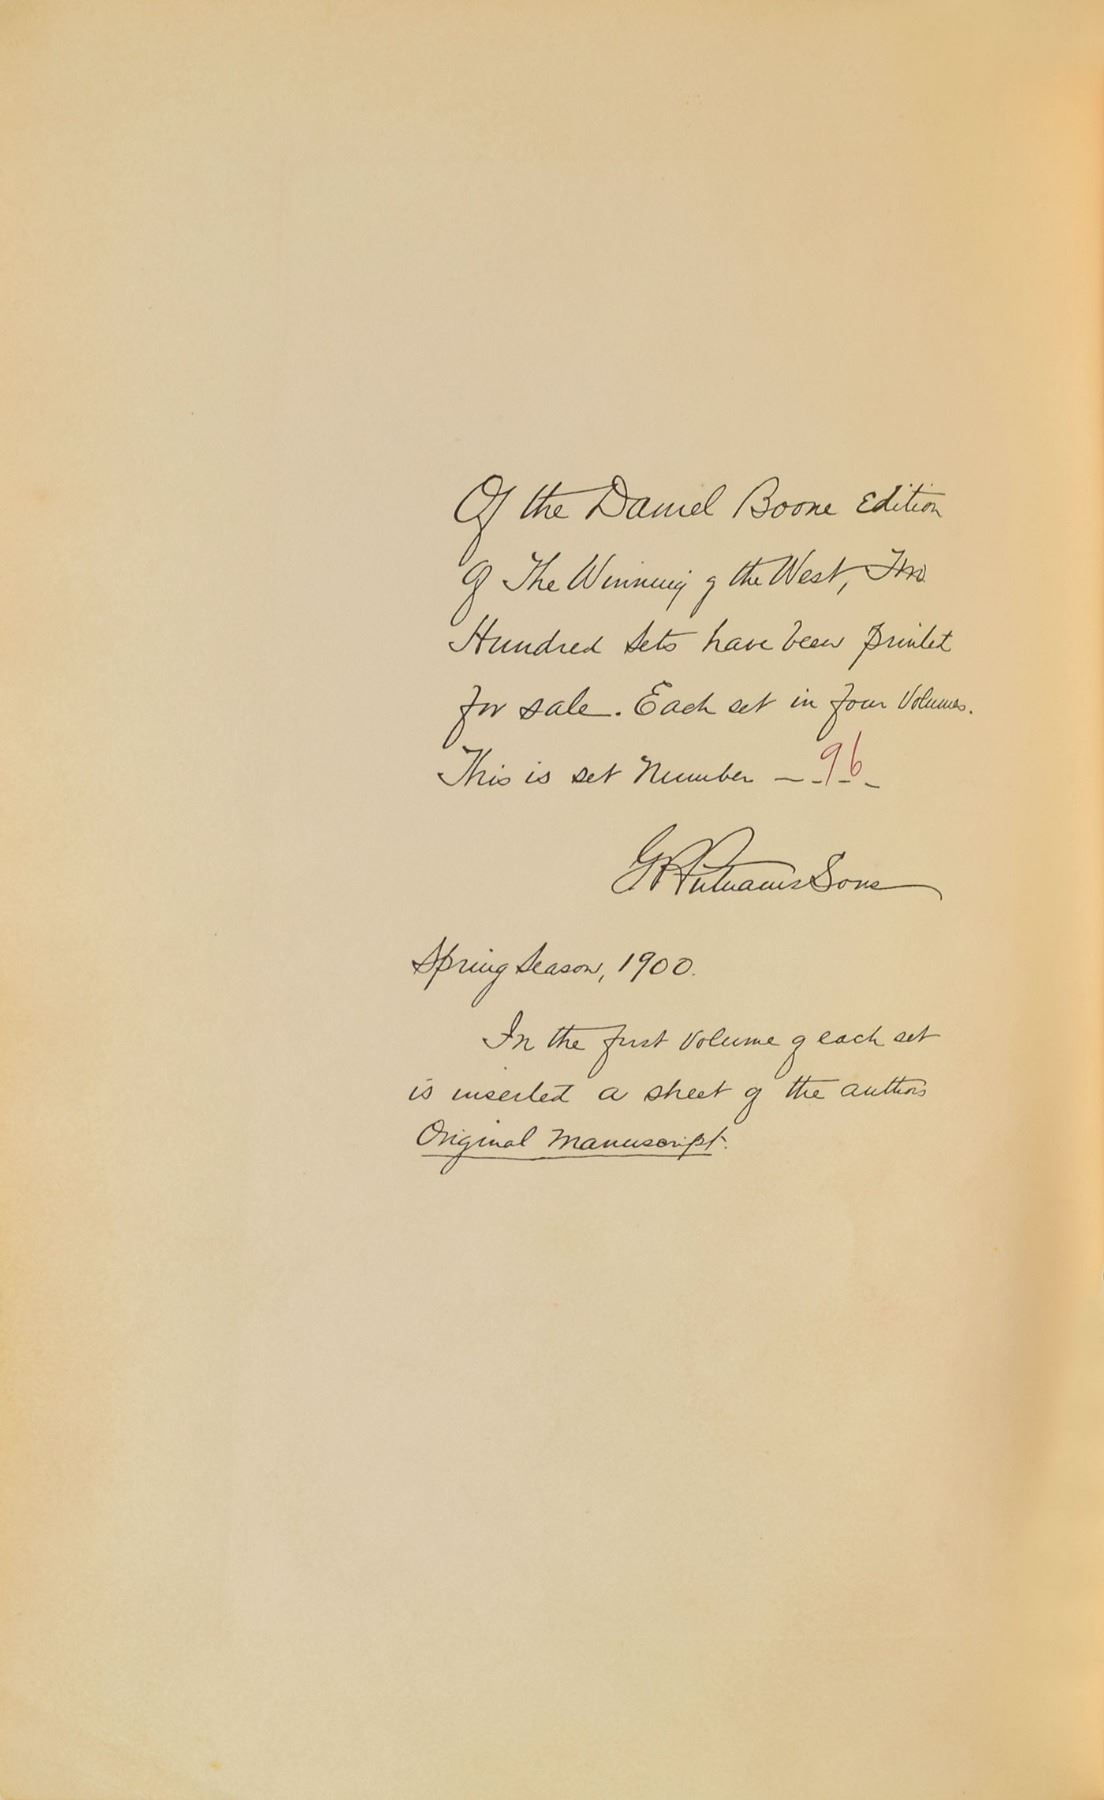 Of the Daniel Boone Edition
Of The Winning of the West, Two
Hundred sets have been printed
for sale. Each set in four Volumes.
This is set Number — 96 -
G P Putnams Sons
Spring Season, 1900.
In the first volume of each set
is inserted a sheet of the authors
Original Manuscript.